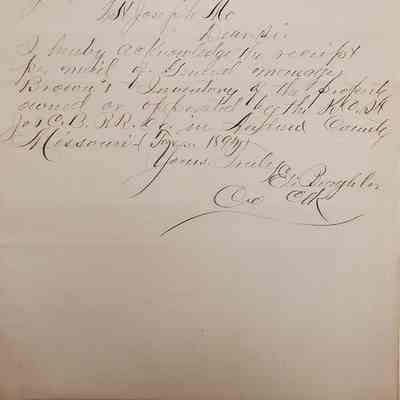 St Joseph Mo
Dear Sir
I hereby acknowledge the receipt
per mail of General manager
Brown's Inventory of the property
owned or operated by the K.C. St
Jos C. B. R.R. Co in County
Missouri (for 1894)
Yours Truly
Co Clk